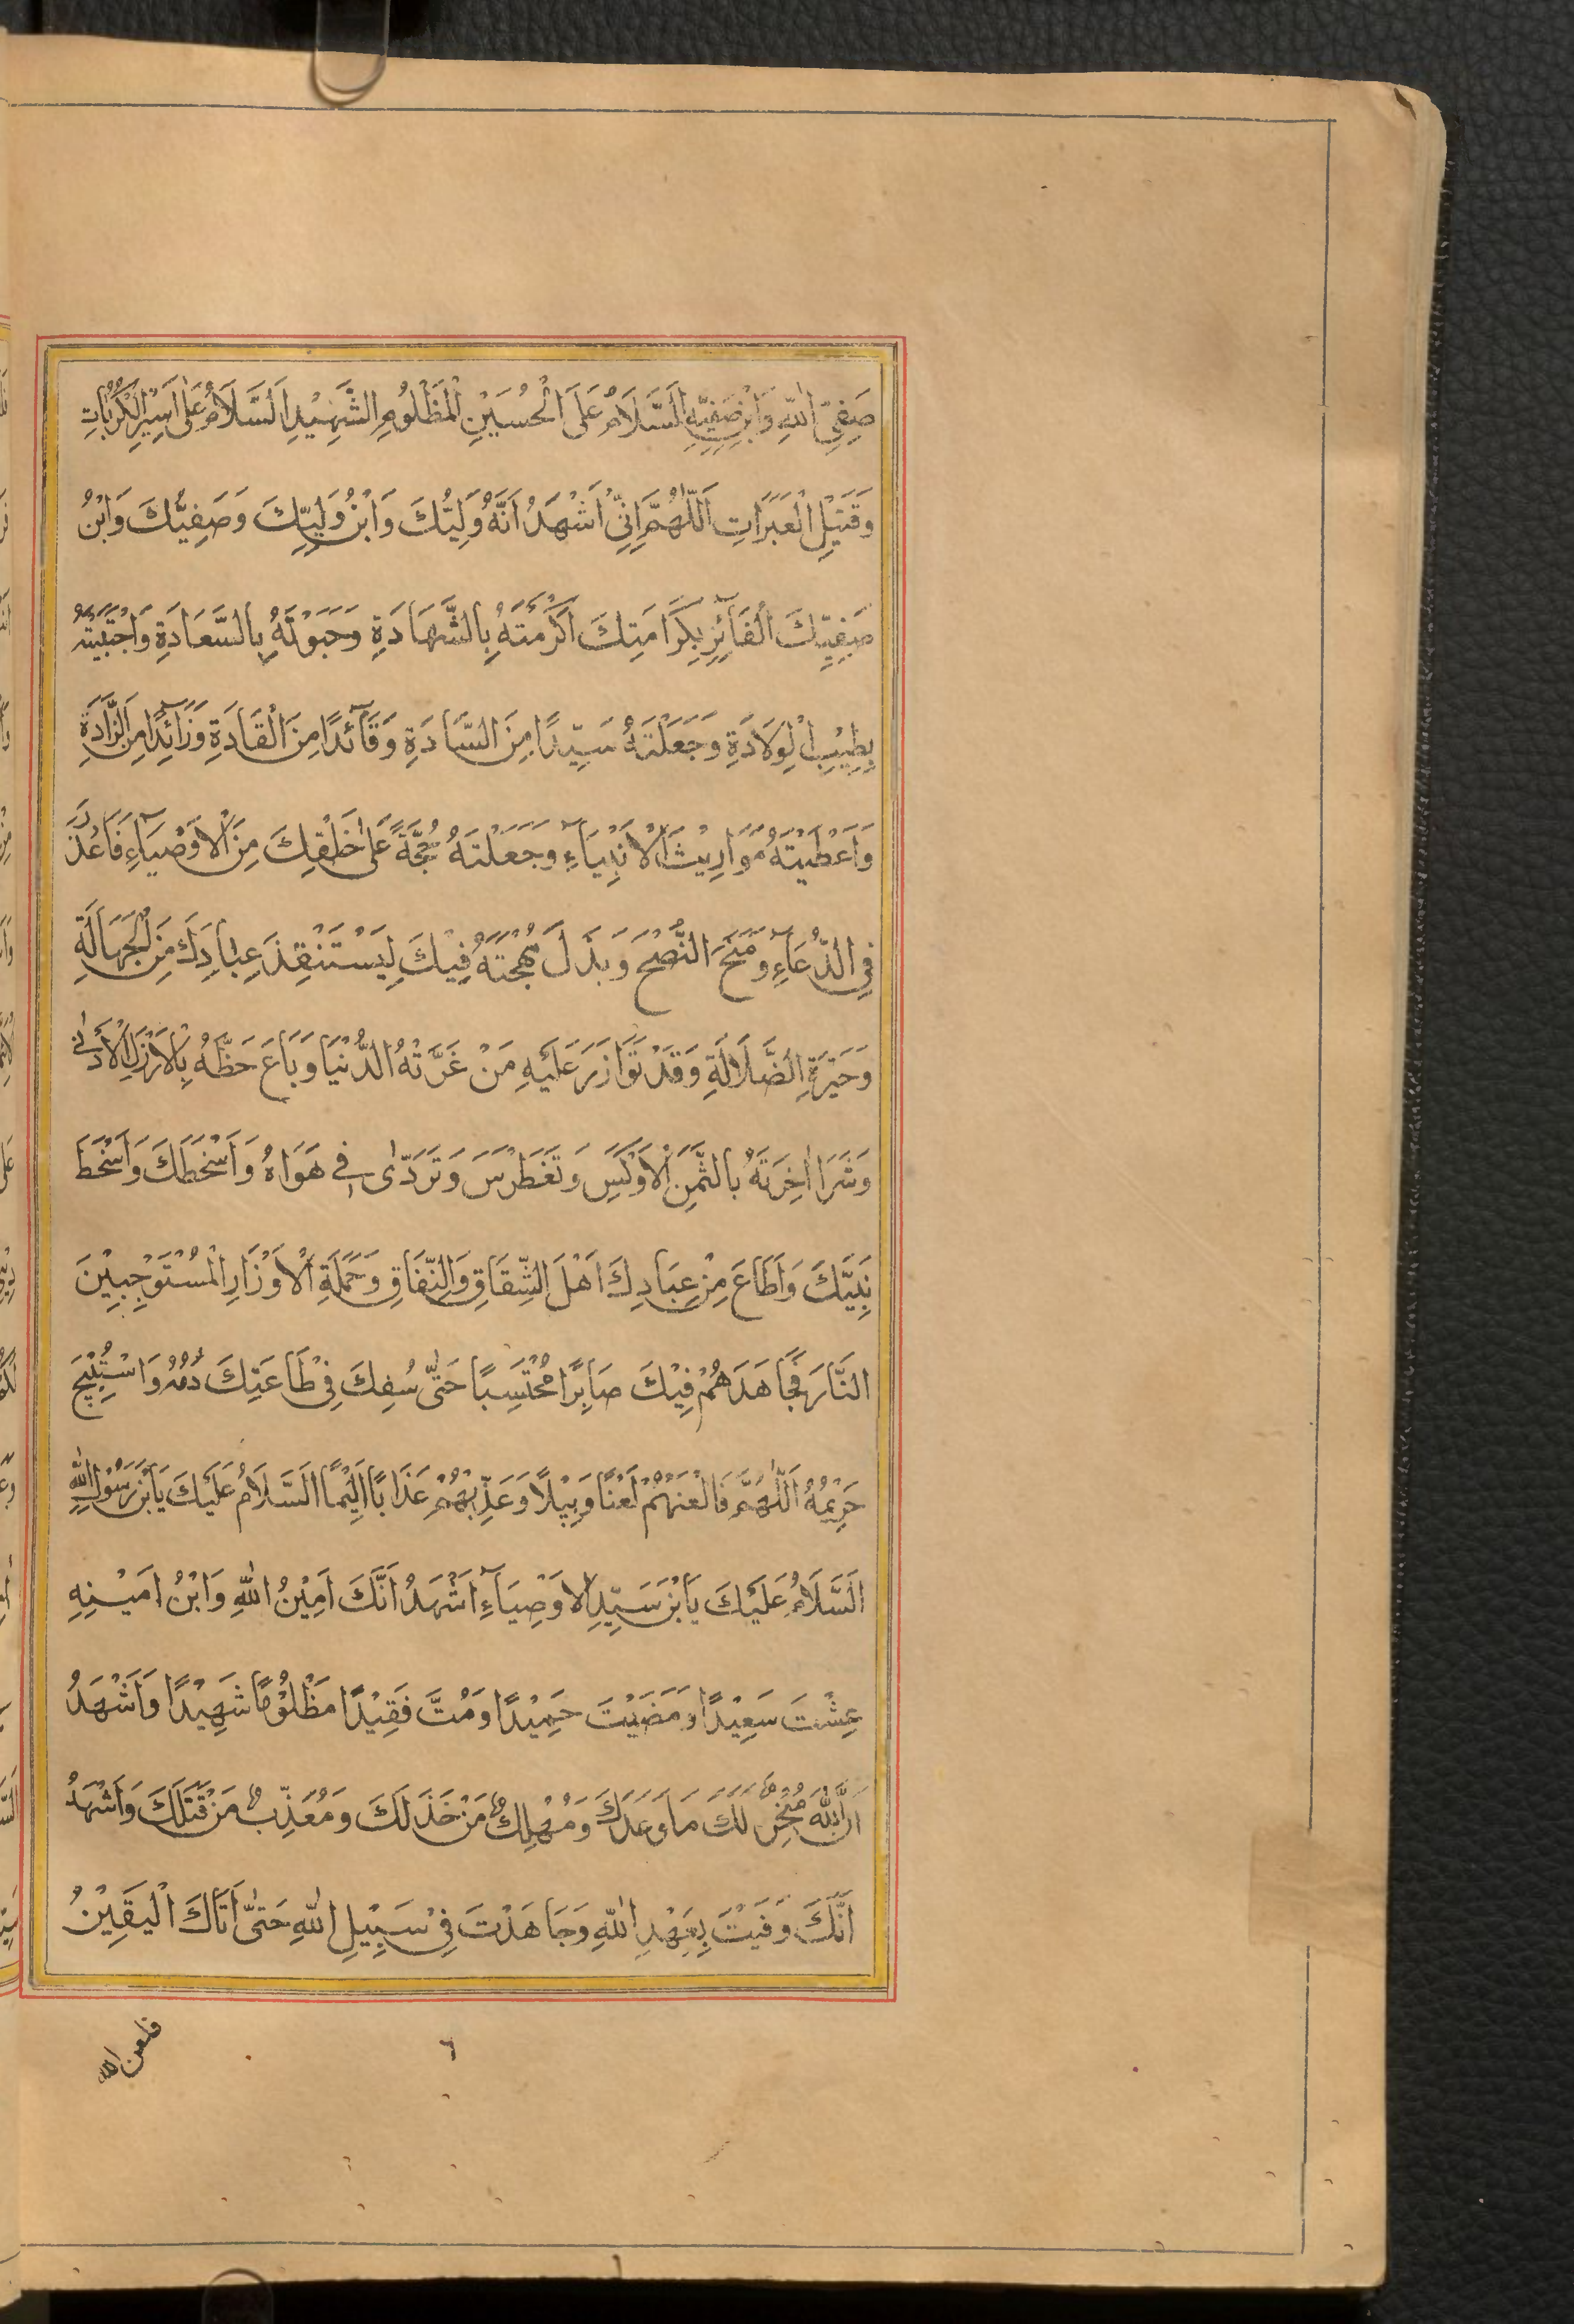 صَفِيِّ اللّٰهِ وَابْنِ صَفِيِّهِ اَلسَّلَامُ عَلَى الْحُسَيْنِ الْمَظْلُومِ الشَّهِيْدِ اَلسَّلَامُ عَلٰى اَسِيْرِ الْكُرُبَاتِ
وَقَتِيْلِ الْعَبَرَاتِ اَللّٰهُمَّ اِنِّيْ اَشْهَدُ اَنَّهُ وَلِيُّكَ وَابْنُ وَلِيِّكَ وَصَفِيُّكَ وَابْنُ
صَفِيِّكَ الْفَآئِزِ بِكَرَامَتِكَ اَكْرَمْتَهُ بِالشَّهَادَةِ وَحَبَوْتَهُ بِالسَّعَادَةِ وَاجْتَبَيْتَهُ
بِطِيْبِ الْوِلَادَةِ وَجَعَلْتَهُ سَيِّدًا مِنَ السَّادَةِ وَقَآئِدًا مِنَ الْقَادَةِ وَزَآئِدًا مِنَ الزَّادَةِ
وَاَعْطَيْتَهُ مَوَارِيْثَ الْاَنْبِيَآءِ وَجَعَلْتَهُ حُجَّةً عَلٰى خَلْقِكَ مِنَ الْاَوْصِيَآءِ فَاَعْذَرَ
فِي الدُّعَآءِ وَمَنَحَ النُّصْحَ وَبَذَلَ مُهْجَتَهُ فِيْكَ لِيَسْتَنْقِذَ عِبَادَكَ مِنَ الْجَهَالَةِ
وَحَيْرَةِ الضَّلَالَةِ وَقَدْ تَوَازَرَ عَلَيْهِ مَنْ غَرَّتْهُ الدُّنْيَا وَبَاعَ حَظَّهُ بِالْاَرْزَلِ الْاَدْنٰى
وَشَرَا اٰخِرَتَهُ بِالثَّمَنِ الْاَوْكَسِ وَتَغَطْرَسَ وَتَرَدّٰى فِي هَوَاهُ وَاَسْخَطَكَ وَاَسْخَطَ
نَبِيَّكَ وَاَطَاعَ مِنْ عِبَادِكَ اَهْلَ الشِّقَاقِ وَالنِّفَاقِ وَحَمَلَةِ الْاَوْزَارِ الْمُسْتَوْجِبِيْنَ
النَّارَ فَجَاهَدَهُمْ فِيْكَ صَابِرًا مُحْتَسِبًا حَتّٰى سُفِكَ فِيْ طَاعَتِكَ دَمُهُ وَاسْتُبِيْحَ
حَرِيْمُهُ اَللّٰهُمَّ فَالْعَنْهُمْ لَعْنًا وَبِيْلًا وَعَذِّبْهُمْ عَذَابًا اَلِيْمًا اَلسَّلَامُ عَلَيْكَ يَابْنَ رَسُوْلِ اللّٰهِ
اَلسَّلَامُ عَلَيْكَ يَابْنَ سَيِّدِ الْاَوْصِيَآءِ اَشْهَدُ اَنَّكَ اَمِيْنُ اللّٰهِ وَابْنُ اَمِيْنِهِ
عِشْتَ سَعِيْدًا وَمَضَيْتَ حَمِيْدًا وَمُتَّ فَقِيْدًا مَظْلُوْمًا شَهِيْدًا وَاَشْهَدُ
اَنَّ اللّٰهَ مُنْجِزٌ لَكَ مَا وَعَدَكَ وَمُهْلِكٌ مَنْ خَذَلَكَ وَمُعَذِّبٌ مَنْ قَتَلَكَ وَاَشْهَدُ
اَنَّكَ وَفَيْتَ بِعَهْدِ اللّٰهِ وَجَاهَدْتَ فِيْ سَبِيْلِ اللّٰهِ حَتّٰى اَتَاكَ الْيَقِيْنُ
٦
فلعن الله